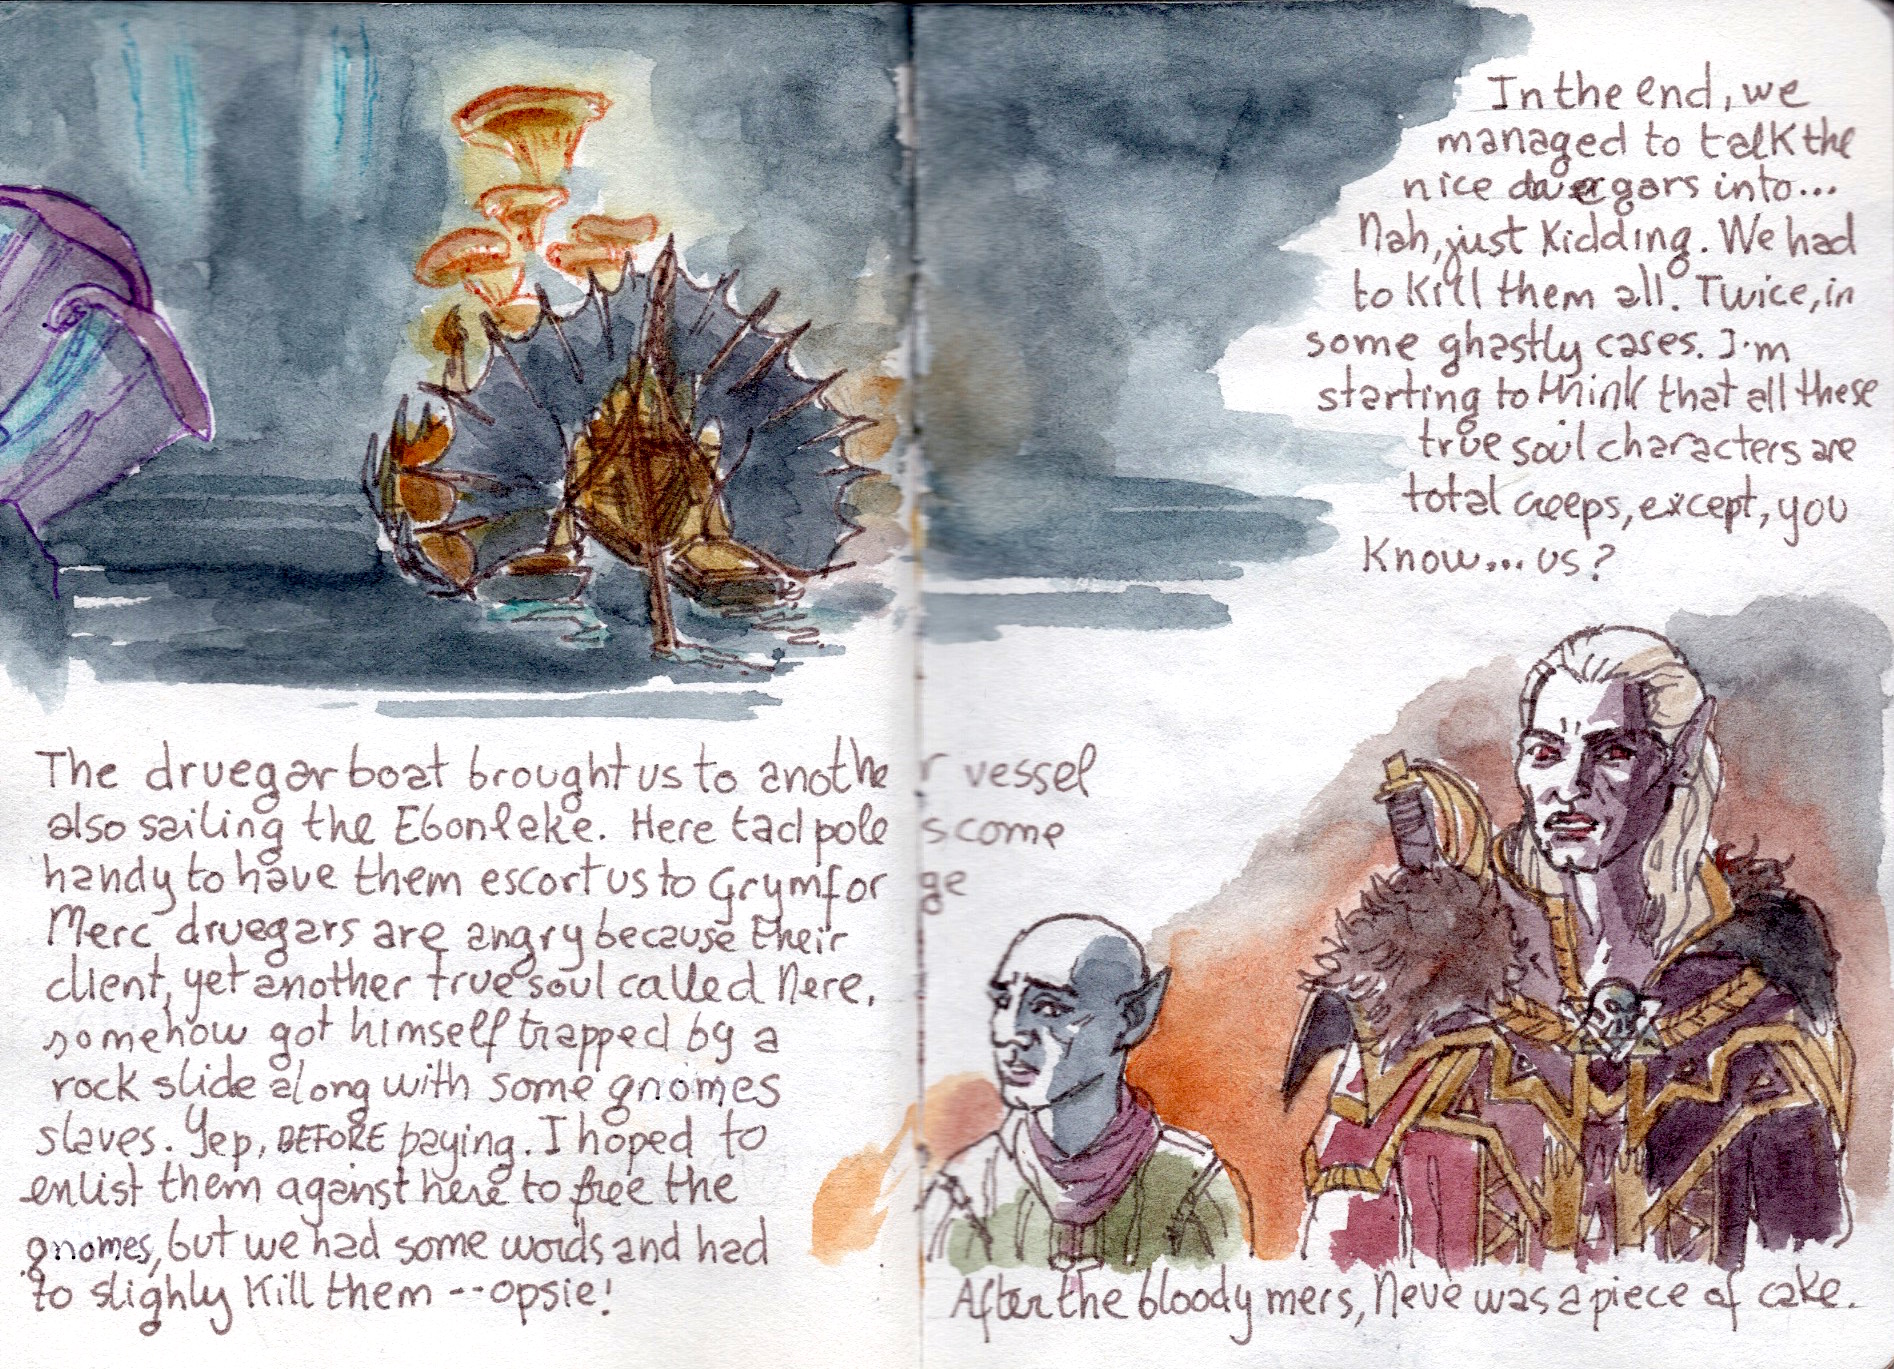 In the end, we
managed to talk the
nice duergars into...
Nah, just kidding. We had
to kill them all. Twice, in
some ghastly cases. I'm
starting to think that all these
true soul characters are
total creeps, except, you
know... us?
The druegar boat brought us to another vessel
also sailing the Ebonlake. Here tadpoles come
handy to have them escort us to Grymforge
Merc druegars are angry because their
client, yet another true soul called Nere,
somehow got himself trapped by a
rock slide along with some gnomes
slaves. Yep, BEFORE paying. I hoped to
enlist them against here to free the
gnomes, but we had some words and had
to slighly kill them -- opsie!
After the bloody mers, Neve was a piece of cake.